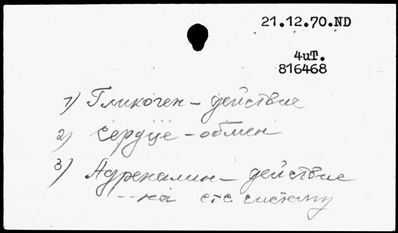 21.12.70.ND
4иТ.
816468
1) Гликоген – действие
2) Сердце – обмен
3) Адреналин – действие
-- на с-с систему